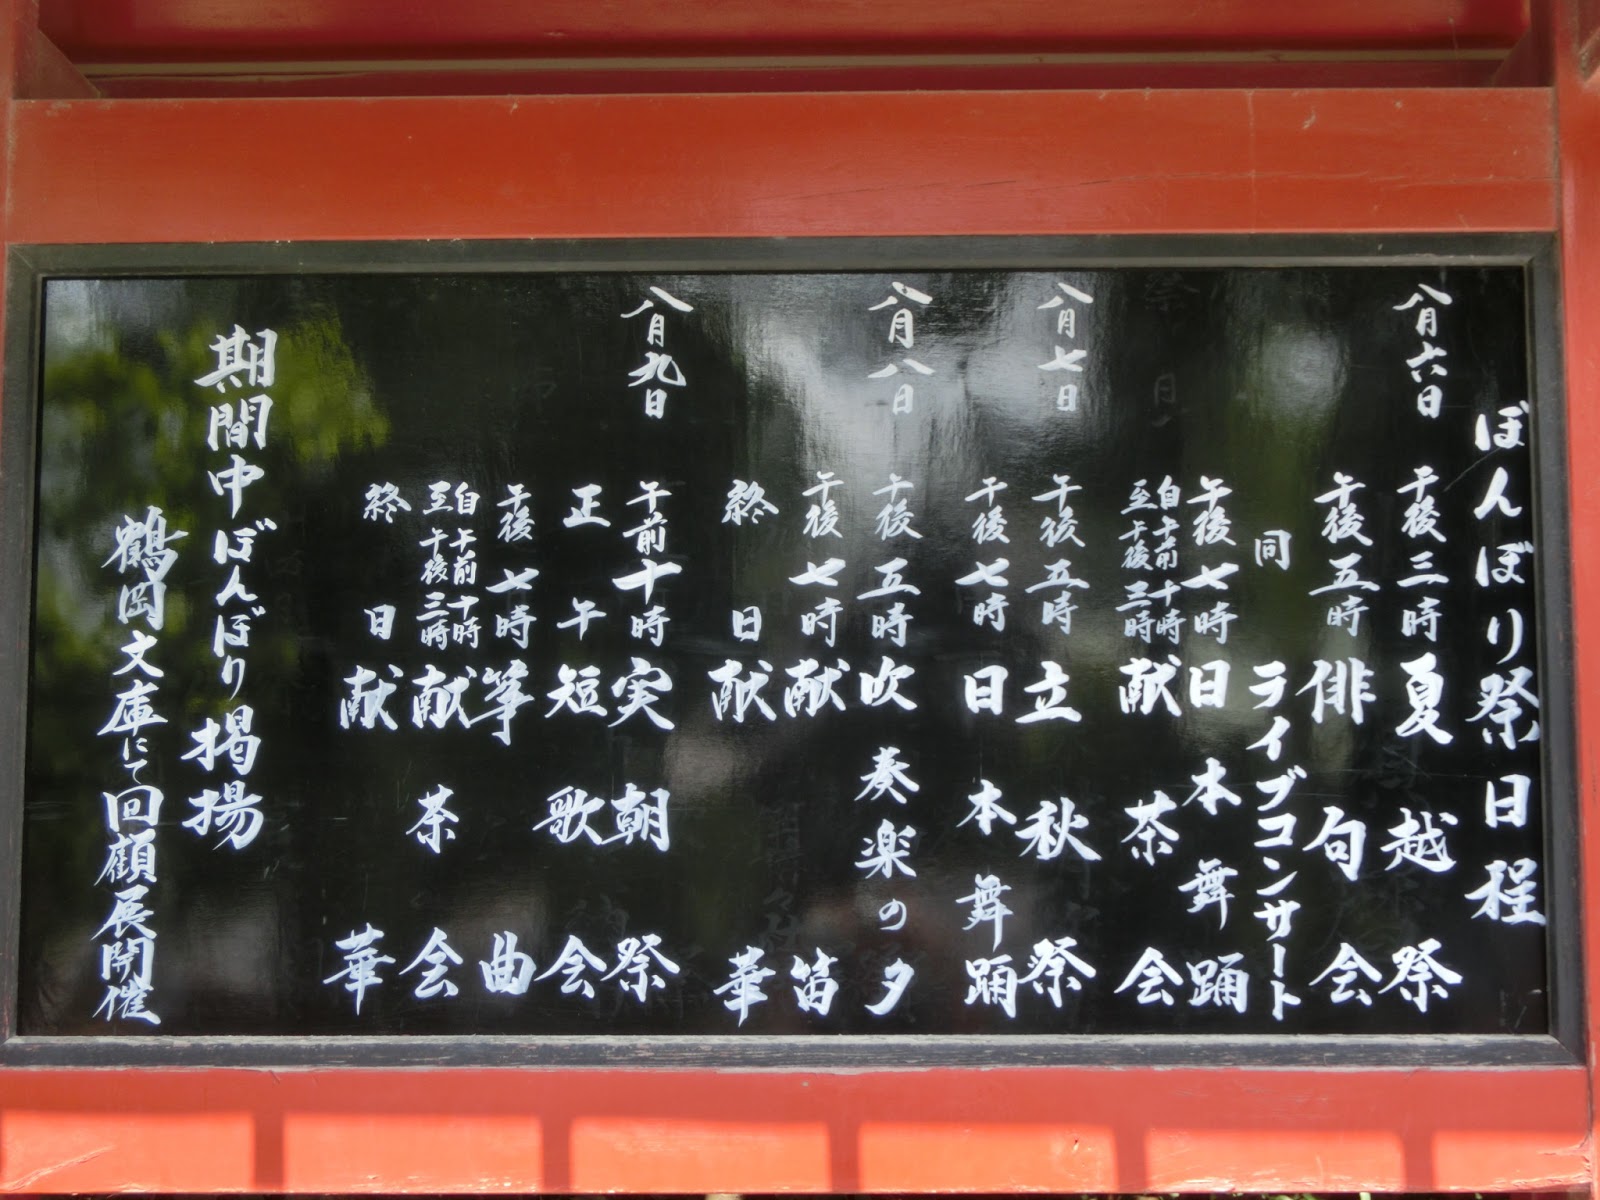 ぼんぼり祭日程
八月六日 午後三時 夏越祭
午後五時 俳句会
同 ライブコンサート
午後七時 日本舞踊
自午前十時 至午後三時 献茶会
八月七日 午後五時 立秋祭
午後七時 日本舞踊
八月八日 午後五時 吹奏楽の夕
午後七時 献笛
終日 献華
八月九日 午前十時 実朝祭
正午 短歌会
午後七時 箏曲
自午前十時 至午後三時 献茶会
終日 献華
期間中ぼんぼり掲揚
鶴岡文庫にて回顧展開催